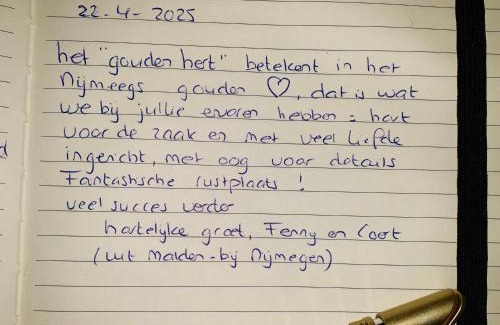 22-4-2025
het "gouden hert" betekent in het
Nijmeegs gouden ♡, dat is wat
we bij jullie ervaren hebben: hart
voor de zaak en met veel liefde
ingericht, met oog voor details
Fantastische rustplaats!
veel succes verder
hartelijke groet, Fenny en Coert
(uit Malden-bij Nijmegen)
d